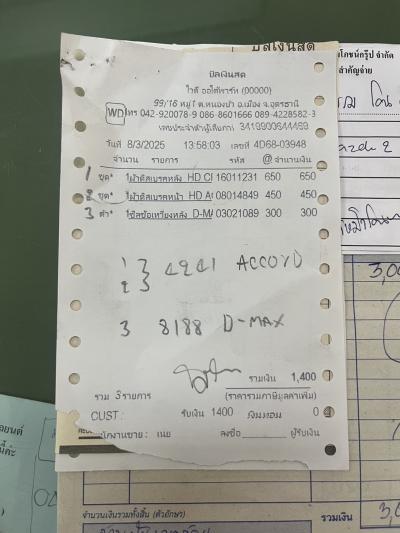 บิลเงินสด
บิลเงินสด
ใจดี ออโต้พาร์ท (00000)
99/16 หมู่1 ต.หนองบัว อ.เมือง จ.อุดรธานี
WD โทร 042-920078-9 086-8601666 089-4228582-3
เลขประจำตัวผู้เสียภาษี 3419900644469
วันที่ 8/3/2025 13:58:03 เลขที่ 4D68-03948
จำนวน รายการ รหัส @ จำนวนเงิน
1 ชุด* ผ้าดิสเบรคหลัง HD CI 16011231 650 650
2 ชุด* ผ้าดิสเบรคหน้า HD A 08014849 450 450
3 ตัว* D-MA 03021089 300 300
1 2 } 4241 ACCORD
3 8188 D-MAX
รวมเงิน 1,400
รวม 3 รายการ (ราคารวมภาษีมูลค่าเพิ่ม)
CUST: รับเงิน 1400 เงินทอน 0
พนักงานขาย: เนย ลงชื่อ ผู้รับเงิน
โภชน์กรุ๊ป จำกัด
สำคัญจ่าย
3,0
จำนวนเงินรวมทั้งสิ้น (ตัวอักษร) รวมเงิน 3,0